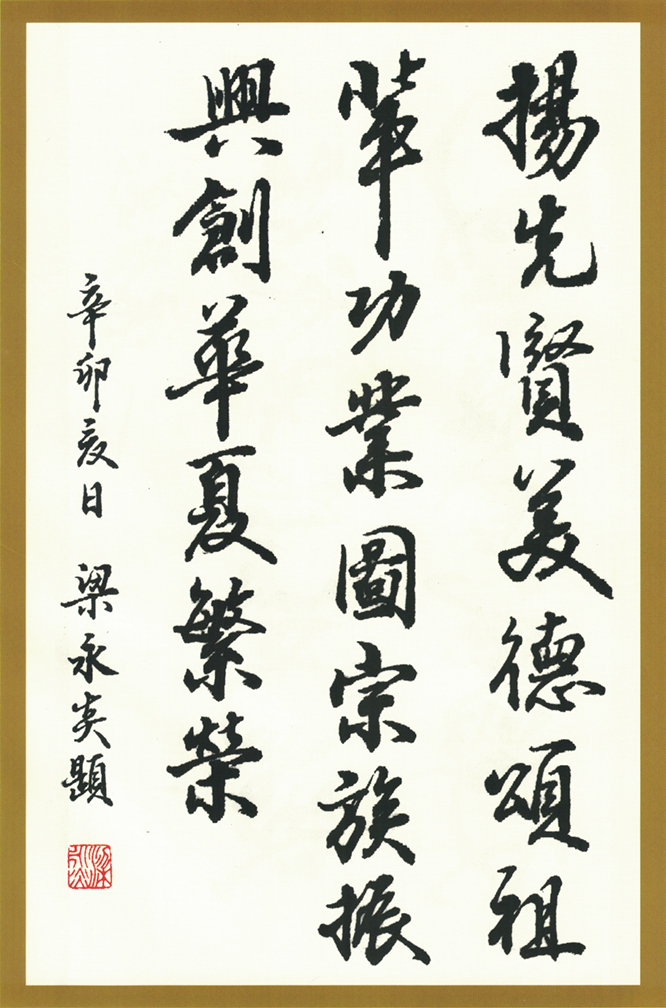 揚先賢美德頌祖
輩功業圖宗族振
興創華夏繁榮
辛卯夏日 梁永炎題